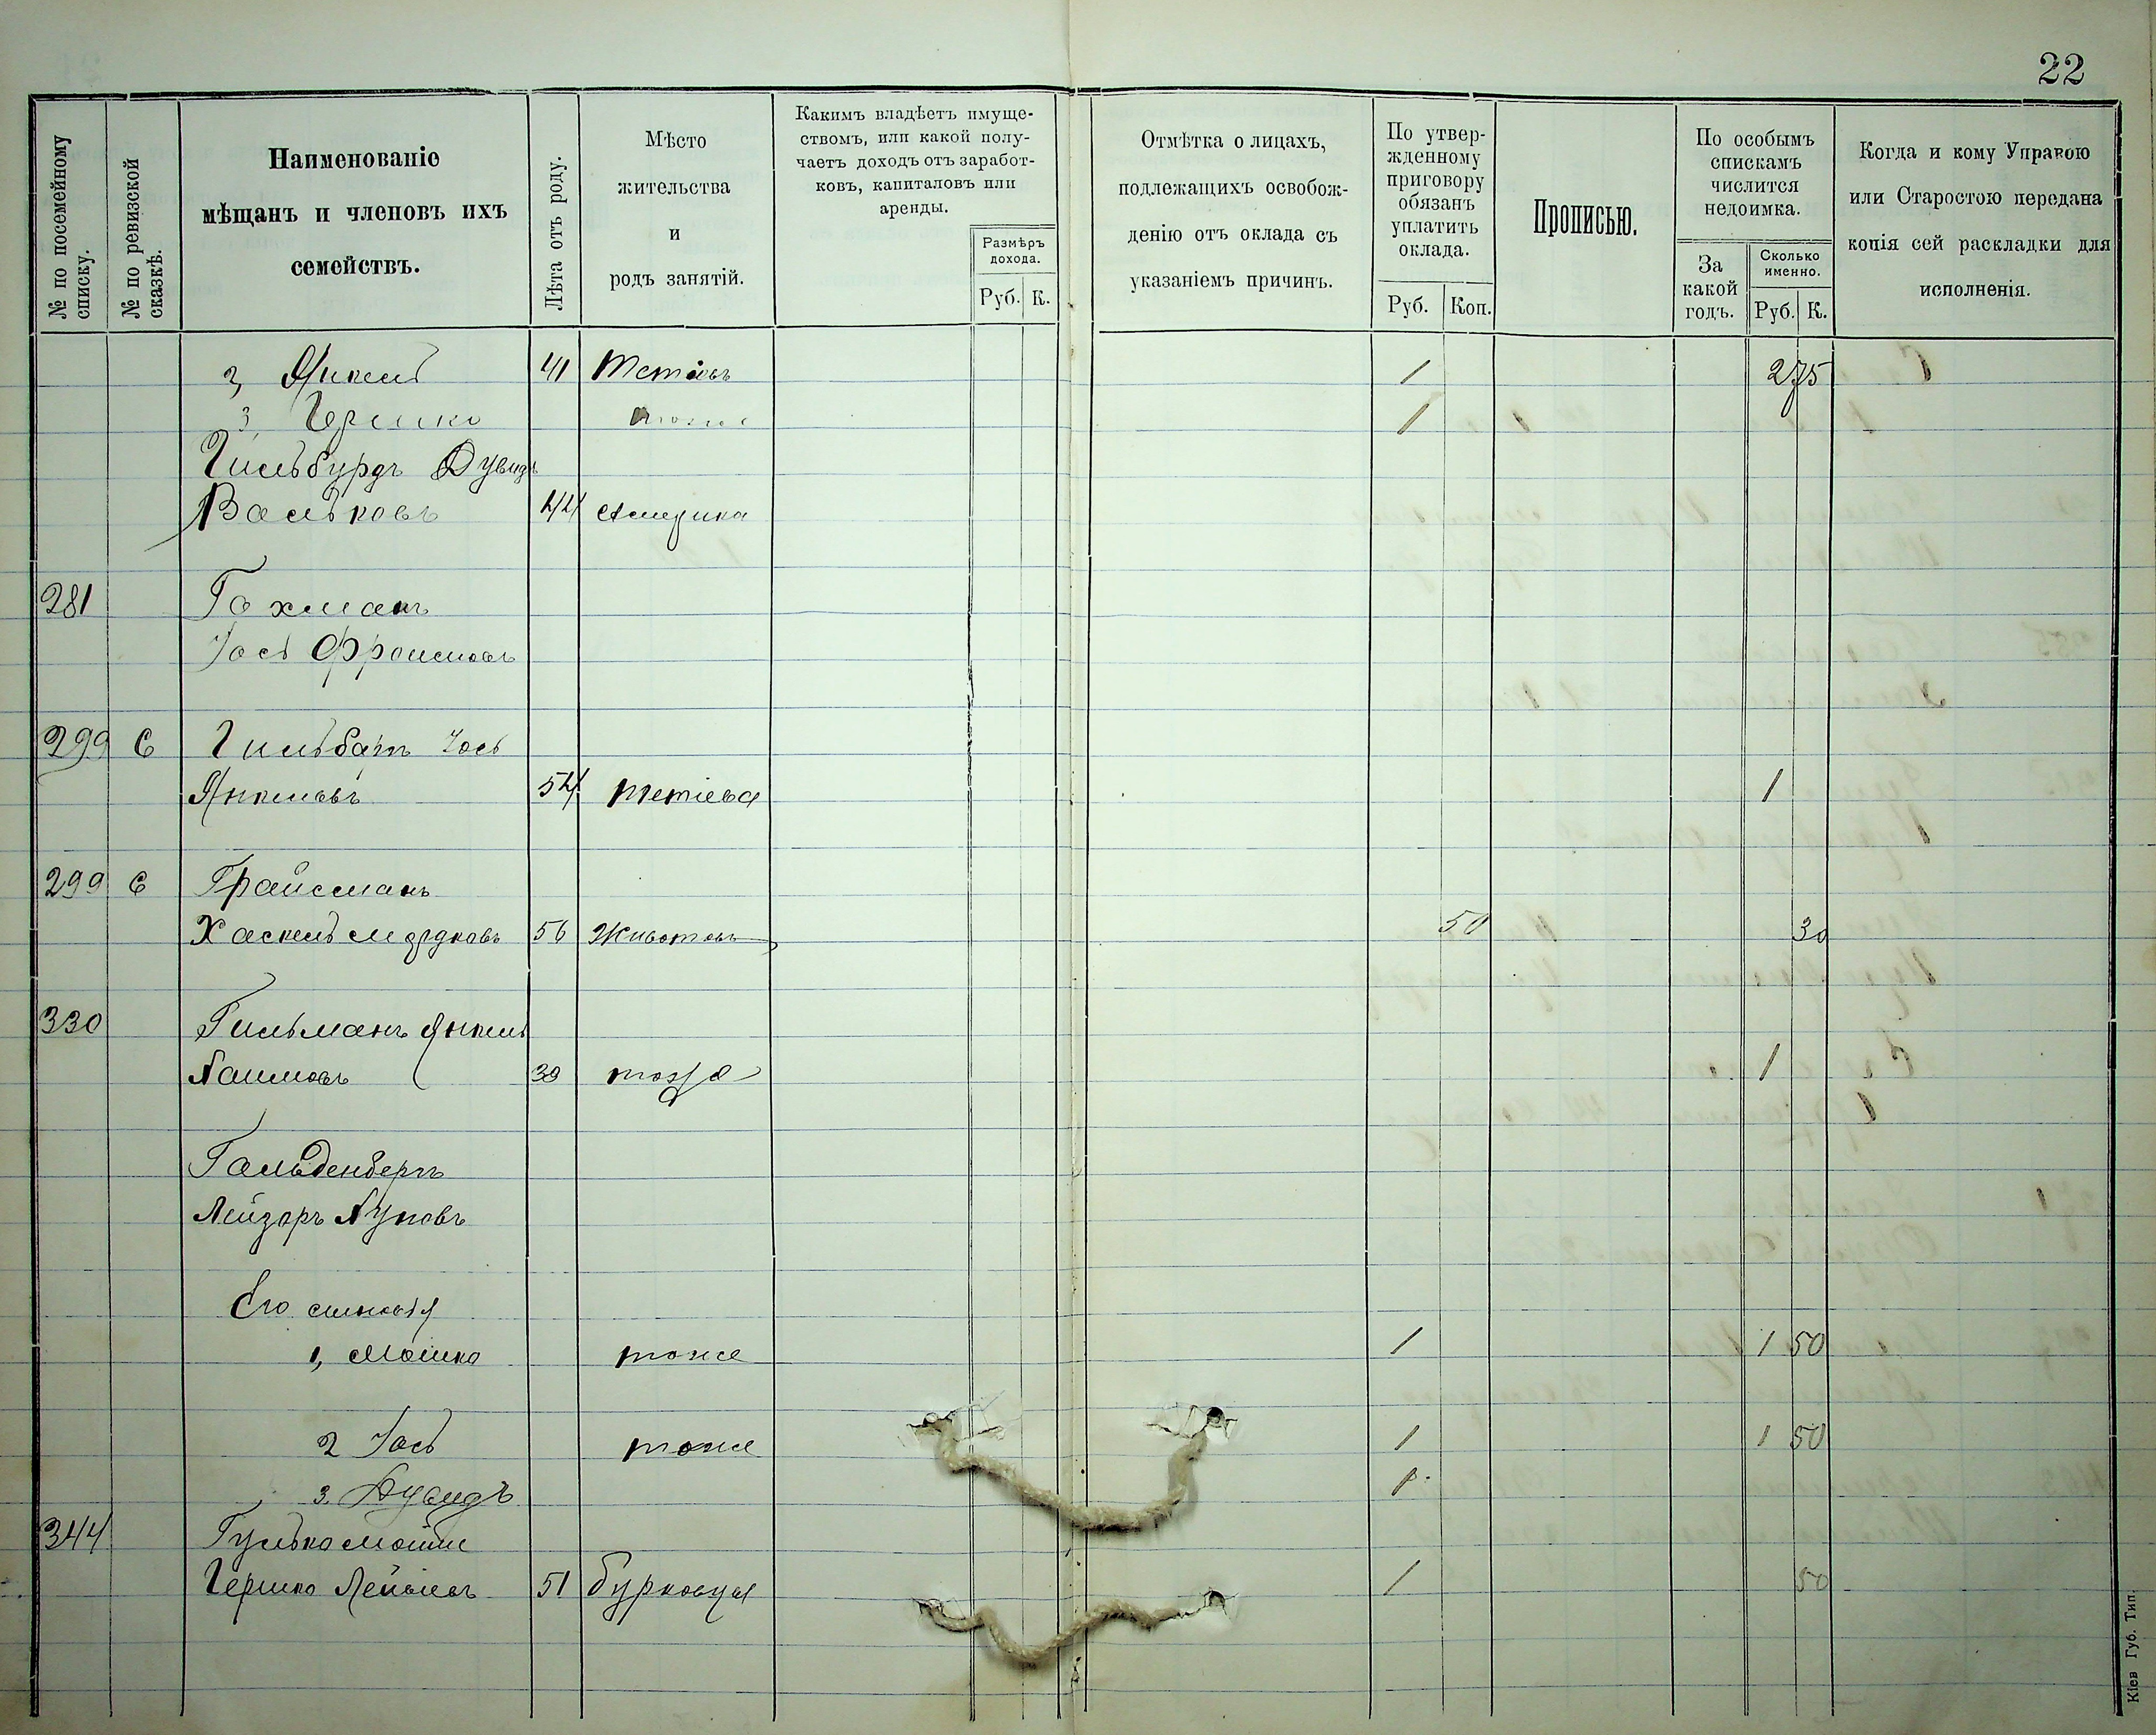 22
№ по посемейному списку.
№ по ревизской сказкѣ.
Наименованіе
мѣщанъ и членовъ ихъ
семействъ.
Лѣта отъ роду.
Мѣсто
жительства
и
родъ занятій.
Какимъ владѣетъ имуще-
ствомъ, или какой полу-
чаетъ доходъ отъ заработ-
ковъ, капиталовъ или
аренды.
Размѣръ
дохода.
Руб. К.
Отмѣтка о лицахъ,
подлежащихъ освобож-
денію отъ оклада съ
указаніемъ причинъ.
По утвер-
жденному
приговору
обязанъ
уплатить
оклада.
Руб. Коп.
Прописью.
По особымъ
спискамъ
числится
недоимка.
За
какой
годъ.
Сколько
именно.
Руб. К.
Когда и кому Управою
или Старостою передана
копія сей раскладки для
исполненія.
2, Янкель 41 Тетіевъ 1 2 75
3, Гершко тоже 1
Гильбурдъ Дувидъ
Вольковъ 44 Америка
281 Гохманъ
Іось Фроимовъ
299 6 Іось
Янкелевъ 54 Тетіева 1
299 6 Грайсманъ
Хаскель Мордковъ 56 Животовъ 50 30
330 Гильманъ Янкель
Хаимовъ 39 тожъ 1
Гольденбергъ
Лейзоръ
Его сыновья
1, Мошко тоже 1 1 50
2 Іось тоже 1 1 50
3. Дувидъ 1
344 Гулько
Гершко 51 Бурковцы 1 50
Кіев Губ. Тип.